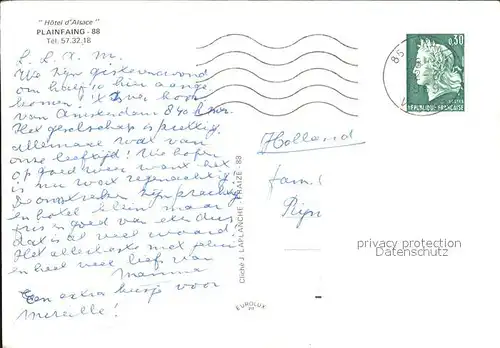 " Hôtel d'Alsace "
PLAINFAING - 88
Tel. 57.32.18
L. L. A. M.
We zijn gisterenavond
om half 10 hier aange
komen!
van Amsterdam 840 k.m.
Het gezelschap is prettig
allemaal wat van
onze leeftijd! We hopen
op goed weer want het
is nu wat regenachtig
De omstreken zijn prachtig
en hotel klein maar
fris en goed van eten dus
dat is al veel waard.
Het allerbeste met jullie
en heel veel liefs van
Mamma
Een extra kusje voor
Mireille!
Cliché J. LAPLANCHE - FRAIZE 88
EUROLUX
85
0,30
REPUBLIQUE FRANÇAISE
Holland
Fam.
Rijn
privacy protection
Datenschutz